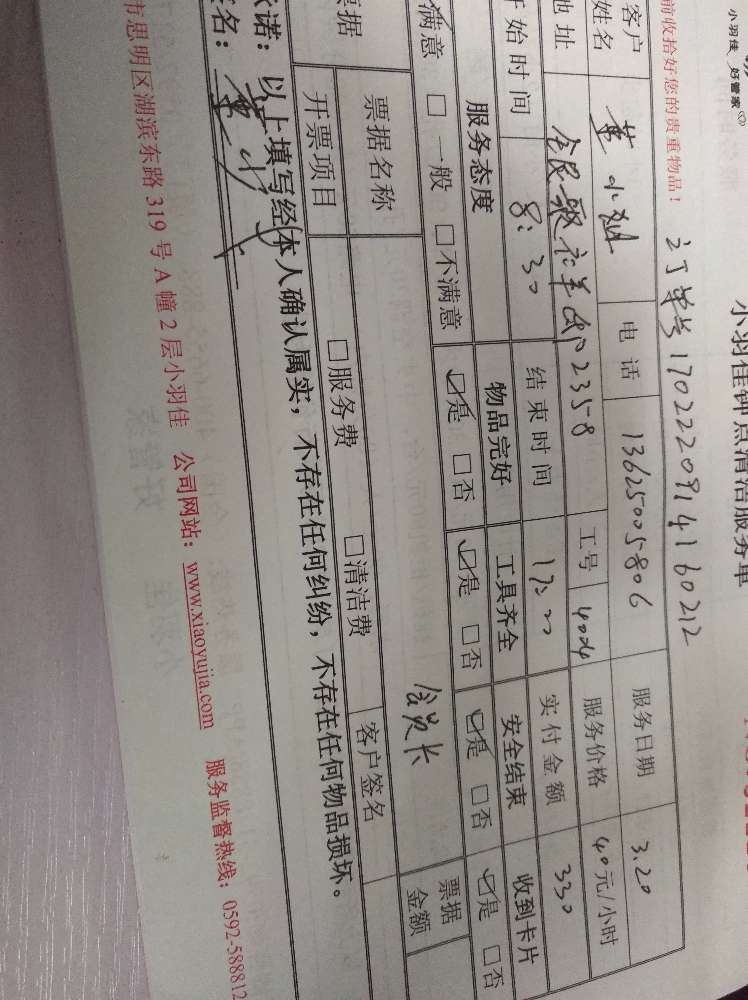 小羽佳 好管家
小羽佳钟点清洁服务单
前收拾好您的贵重物品！ 订单号1702220914160212
客户姓名 电话 13625005806 服务日期 3.20
地址 2358 工号 服务价格 40元/小时
开始时间 8:30 结束时间 17:00 实付金额 330
服务态度 物品完好 工具齐全 安全结束 收到卡片
满意 □ 一般 □不满意 ☑是 □否 ☑是 □否 ☑是 □否 ☑是 □否
会员卡
票据 票据名称 □服务费 □清洁费 客户签名 票据金额
开票项目
承诺：以上填写经本人确认属实，不存在任何纠纷，不存在任何物品损坏。
签名：
市思明区湖滨东路 319 号 A 幢 2 层小羽佳 公司网站：www.xiaoyujia.com 服务监督热线：0592-588812